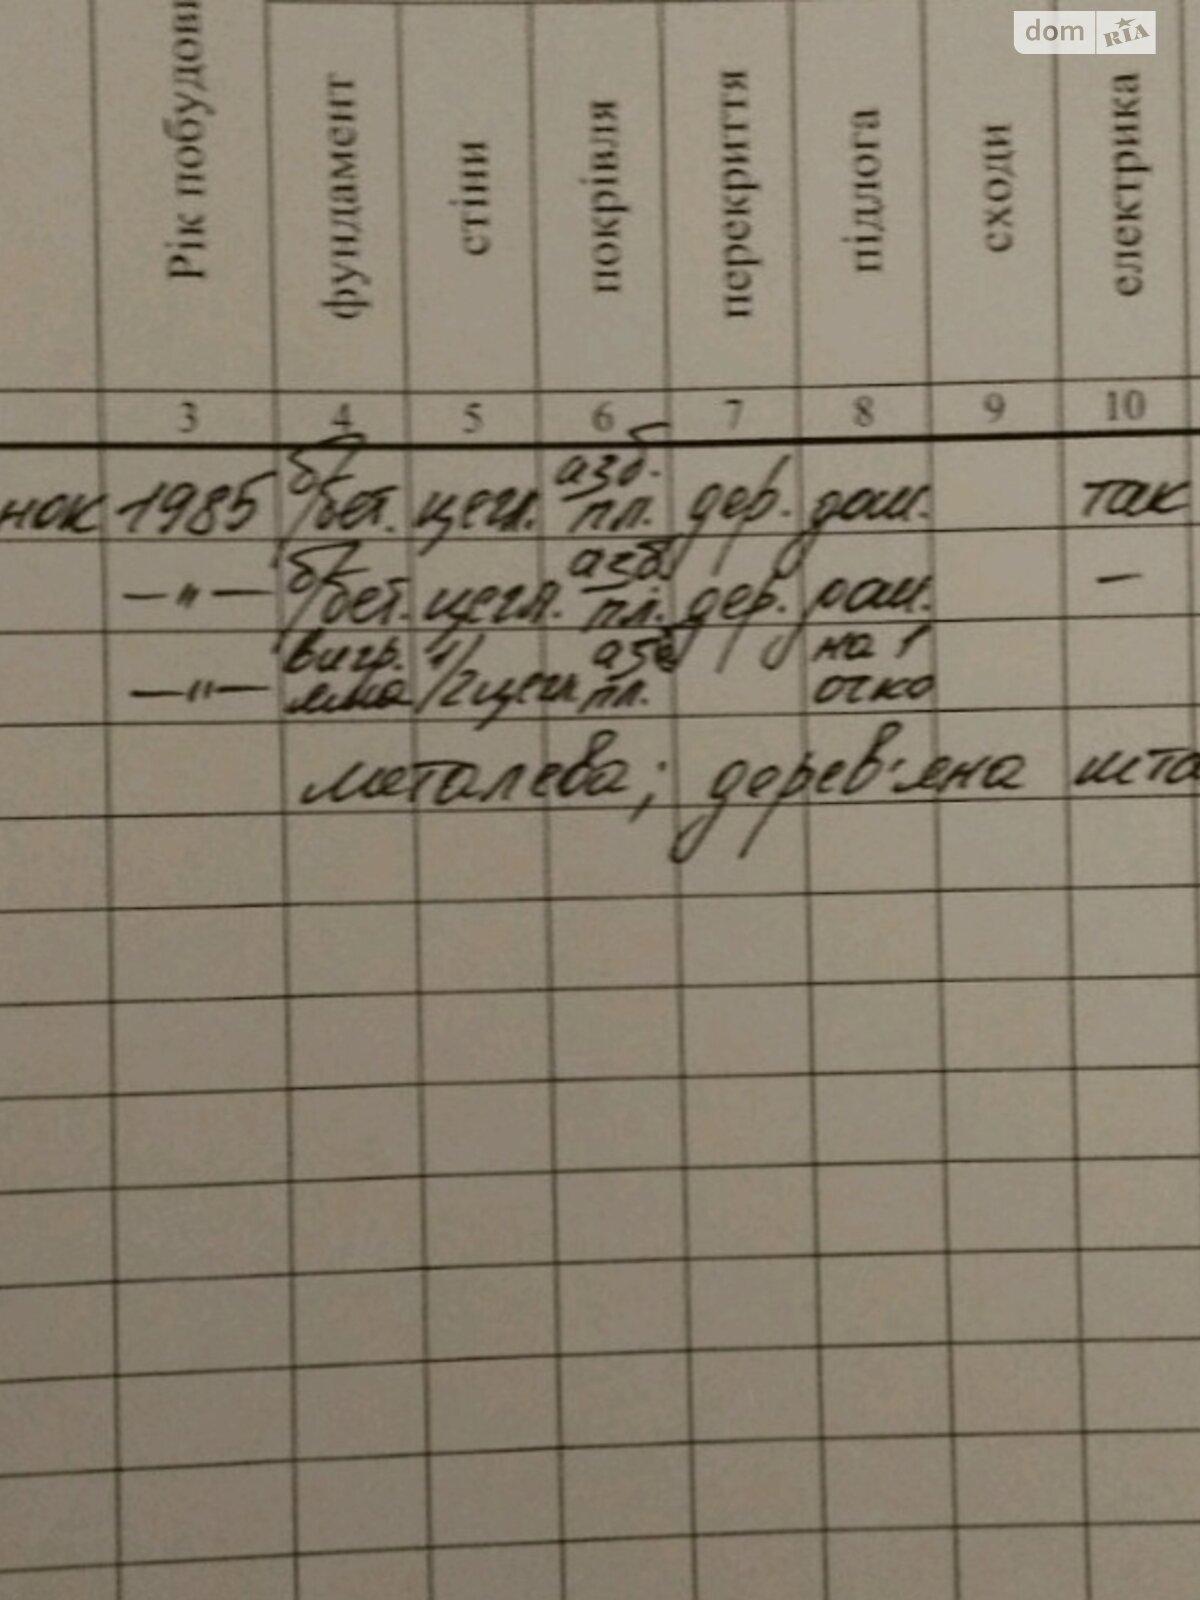 dom RIA
Рік побудови
фундамент
стіни
покрівля
перекриття
підлога
сходи
електрика
3 4 5 6 7 8 9 10
нок 1985 б/бет. цегл. азб. пл. дер. дош. так
—"— б/бет. цегл. азб. пл. дер. дош. —
—"— вигр. яма 1/2 цегл азб пл. на 1 очко
металева; дерев'яна шта